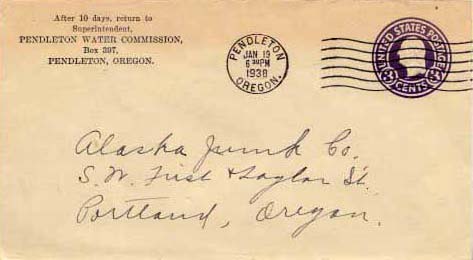 After 10 days, return to
Superintendent,
PENDLETON WATER COMMISSION,
Box 397,
PENDLETON, OREGON.
PENDLETON
JAN 19
6 PM
1938
OREGON.
UNITED STATES POSTAGE
3 CENTS 3
Alaska Junk Co.
S. W. First & Taylor St.
Portland, Oregon.